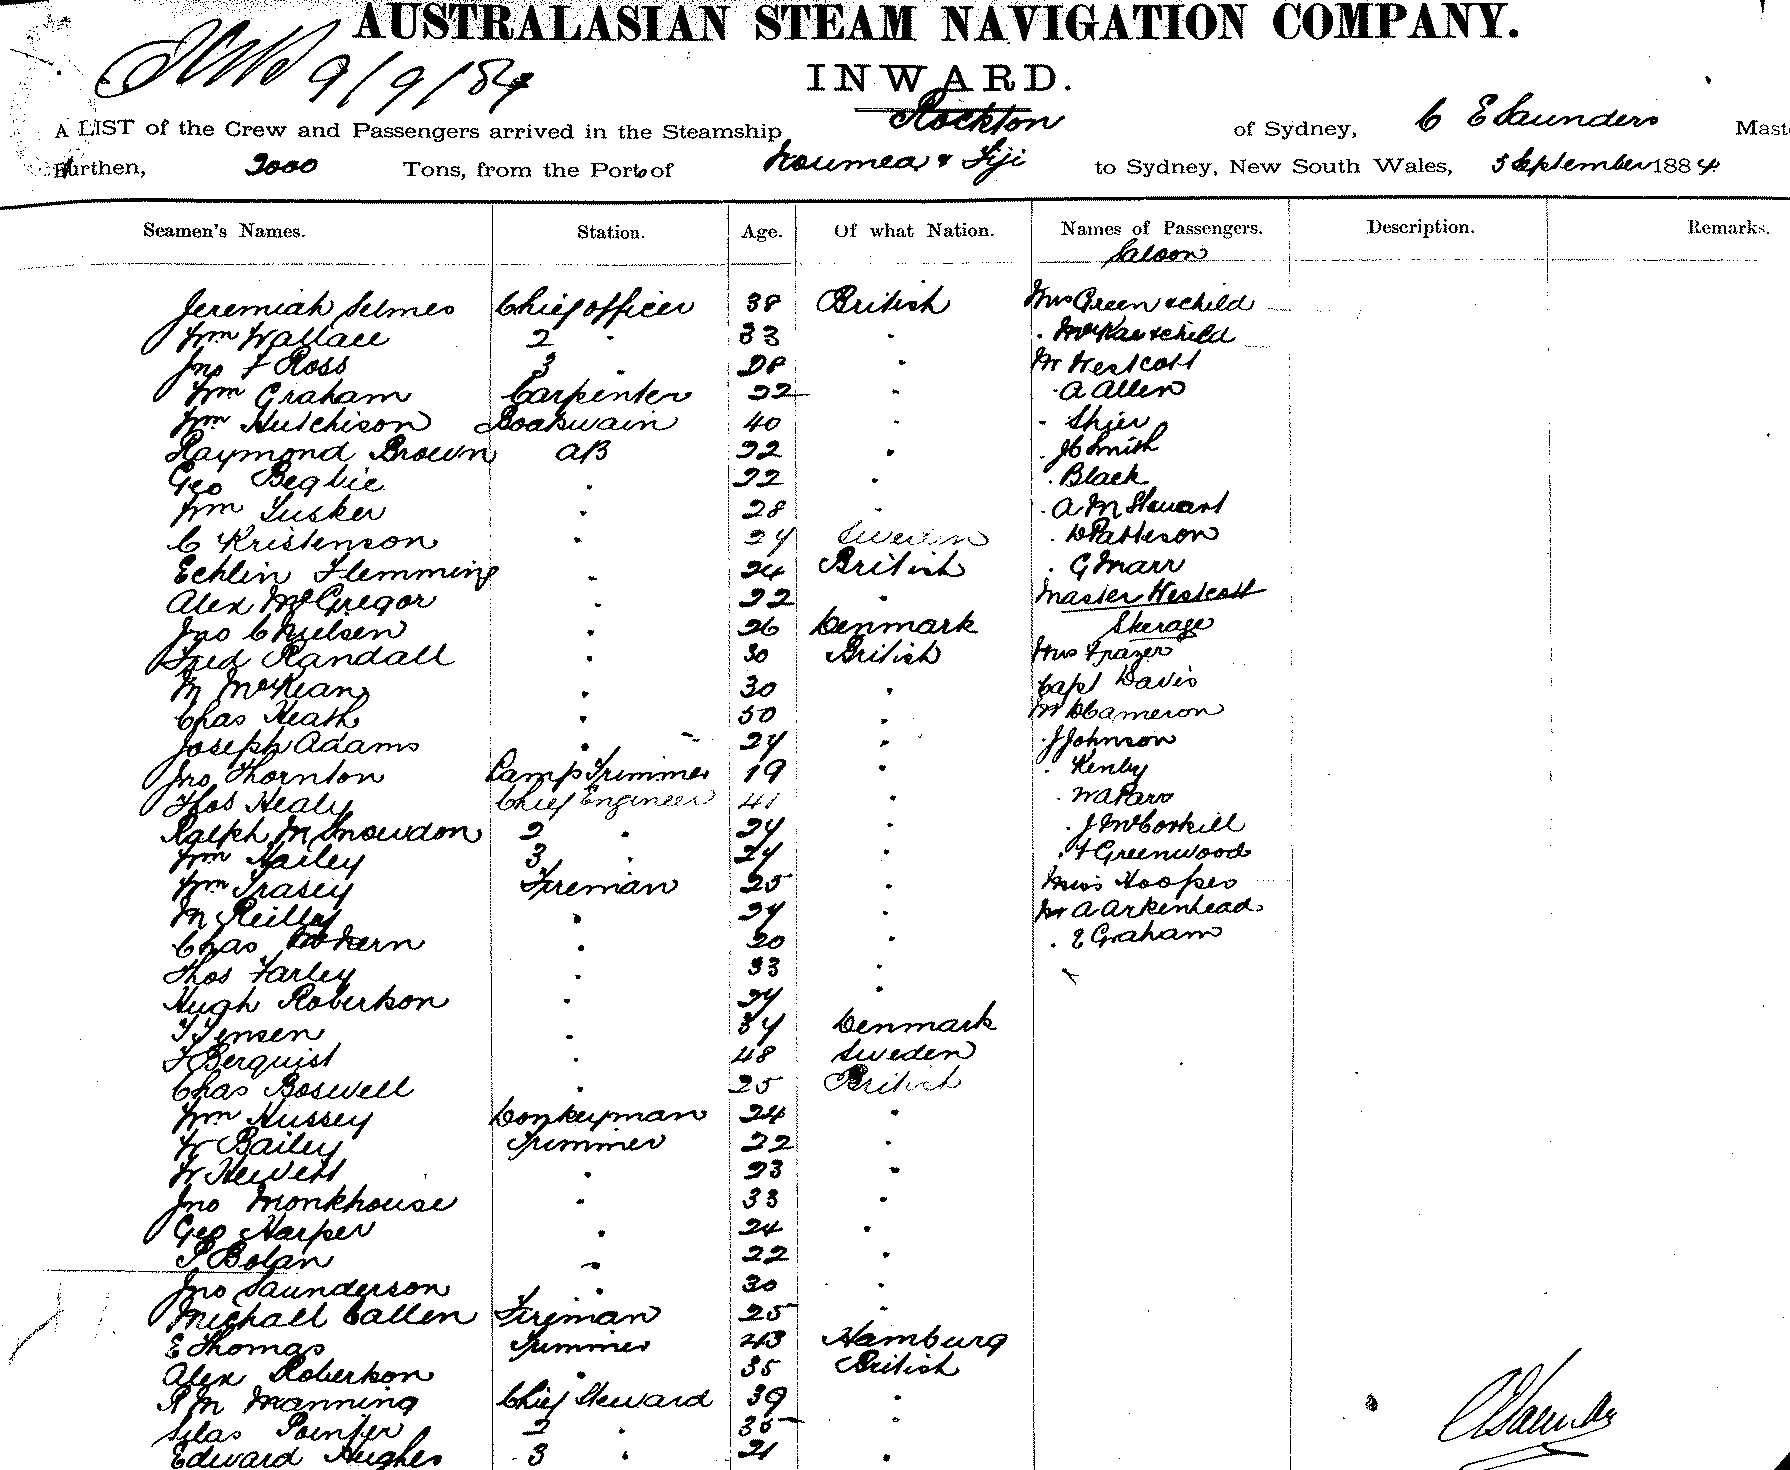 AUSTRALASIAN STEAM NAVIGATION COMPANY.
9/9/84
INWARD.
A LIST of the Crew and Passengers arrived in the Steamship Rockton of Sydney, C E Saunders Mast
Burthen, 2000 Tons, from the Port of Noumea & Fiji to Sydney, New South Wales, 5 September 1884.
Seamen's Names. Station. Age. Of what Nation. Names of Passengers. Description. Remarks.
Saloon
Jeremiah Selmes Chief Officer 38 British Mrs Green & child
Wm Wallace 2 " 33 " " McRae & child
Jno F Ross 3 " 28 " Mr Westcott
Wm Graham Carpenter 22 " " A Allen
Wm Hutchison Boatswain 40 " " Shier
Raymond Brown AB 22 " " J C Smith
Geo Begbie " 22 " " Black
Wm Tusker " 28 " " A M Stewart
C Kristenson " 24 Sweden " D Patteson
Echlin Flemming " 24 British " G Marr
Alex McGregor " 22 " Master Westcott
Jno C Nielsen " 26 Denmark Steerage
Fred Randall " 30 British Mrs Frazer
M McKean " 30 " Capt Davis
Chas Heath " 50 " Mr D Cameron
Joseph Adams " 24 " " J Johnson
Jno Thornton Lamp Trimmer 19 " " Kenby
Thos Healy Chief Engineer 41 " " W A Parr
Ralph M Snowdon 2 " 24 " " J McCorkill
Wm Hailey 3 " 24 " " F Greenwood
Wm Trasey Fireman 25 " Miss Hooper
M Reilley " 24 " Mr A Arkenhead
Chas " 20 " " E Graham
Thos Farley " 33 "
Hugh Robertson " 24 "
T Jensen " 34 Denmark
F Berquist " 48 Sweden
Chas Boswell " 25 British
Wm Hussey Donkeyman 24 "
W Bailey Trimmer 22 "
W Hewett " 23 "
Jno Monkhouse " 33 "
Geo Harper " 24 "
P Bolan " 22 "
Jno Saunderson " 30 "
Michael Callen Fireman 25 "
E Thomas Trimmer 43 Hamburg
Alex Robertson " 35 British
R M Manning Chief Steward 39 "
Silas Pointer 2 " 35 "
Edward Hughes 3 " 21 "
C E Saunders